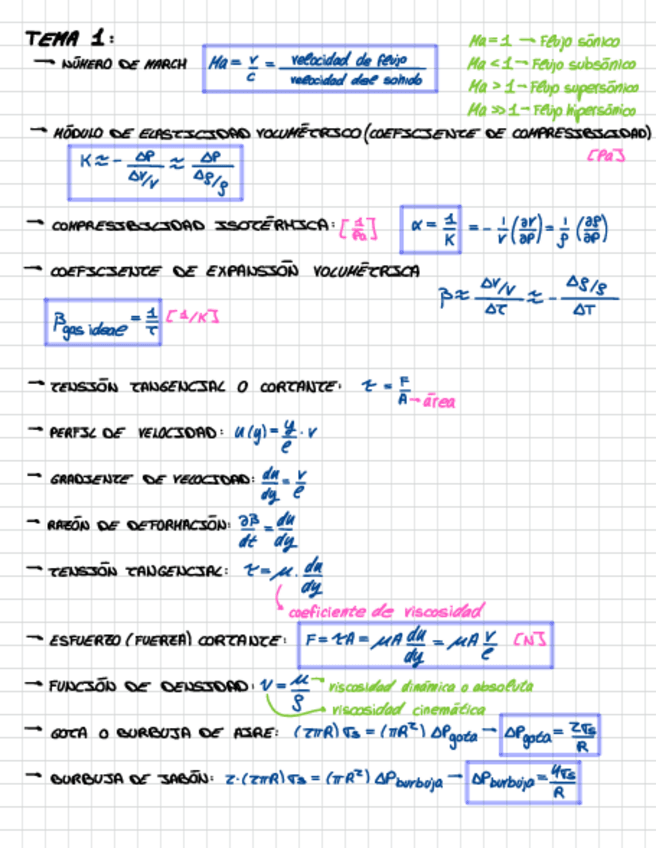 TEMA 1:
→ NÚMERO DE MARCH Ma = v/c = velocidad de flujo / velocidad del sonido
Ma = 1 → Flujo sónico
Ma < 1 → Flujo subsónico
Ma > 1 → Flujo supersónico
Ma >> 1 → Flujo hipersónico
→ MÓDULO DE ELASTICIDAD VOLUMÉTRICO (COEFICIENTE DE COMPRESIBILIDAD)
[Pa]
K ≈ - ΔP / ΔV/V ≈ ΔP / Δρ/ρ
→ COMPRESIBILIDAD ISOTÉRMICA: [1/Pa] α = 1/K = - 1/V (∂V/∂P) = 1/ρ (∂ρ/∂P)
→ COEFICIENTE DE EXPANSIÓN VOLUMÉTRICA
β ≈ ΔV/V / ΔT ≈ - Δρ/ρ / ΔT
β gas ideal = 1/T [1/K]
→ TENSIÓN TANGENCIAL O CORTANTE: τ = F/A → área
→ PERFIL DE VELOCIDAD: u(y) = y/ℓ · V
→ GRADIENTE DE VELOCIDAD: du/dy = V/ℓ
→ RAZÓN DE DEFORMACIÓN: ∂β/dt = du/dy
→ TENSIÓN TANGENCIAL: τ = μ · du/dy
coeficiente de viscosidad
→ ESFUERZO (FUERZA) CORTANTE: F = τA = μA du/dy = μA V/ℓ [N]
→ FUNCIÓN DE DENSIDAD: ν = μ/ρ → viscosidad dinámica o absoluta
→ viscosidad cinemática
→ GOTA O BURBUJA DE AIRE: (2πR) σs = (πR²) ΔP gota → ΔP gota = 2σs/R
→ BURBUJA DE JABÓN: 2·(2πR) σs = (πR²) ΔP burbuja → ΔP burbuja = 4σs/R